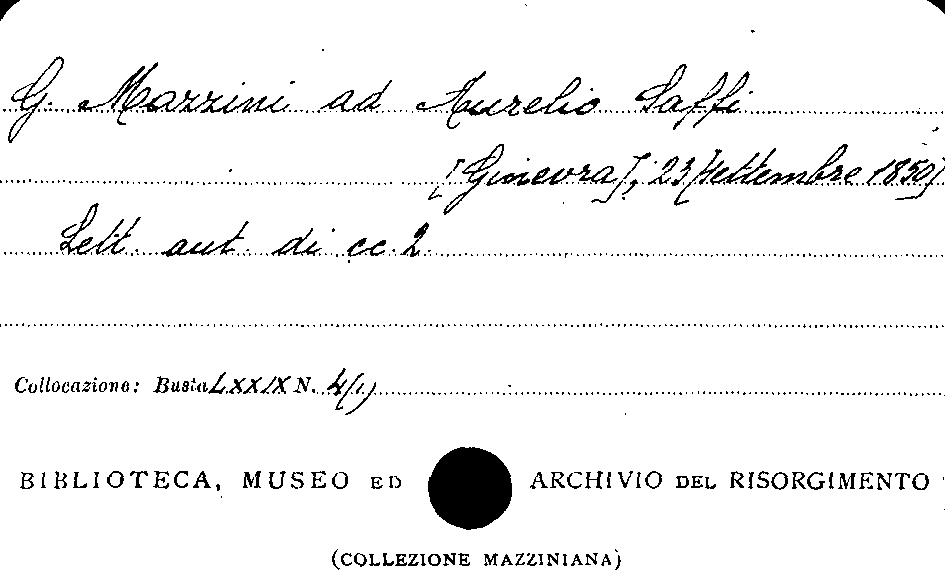 G. Mazzini ad Aurelio Saffi
[Ginevra], 23 [settembre 1850]
Lett. aut. di cc. 2.
Collocazione: Busta LXXIX N. 4(1)
BIBLIOTECA, MUSEO ED ARCHIVIO DEL RISORGIMENTO
(COLLEZIONE MAZZINIANA)